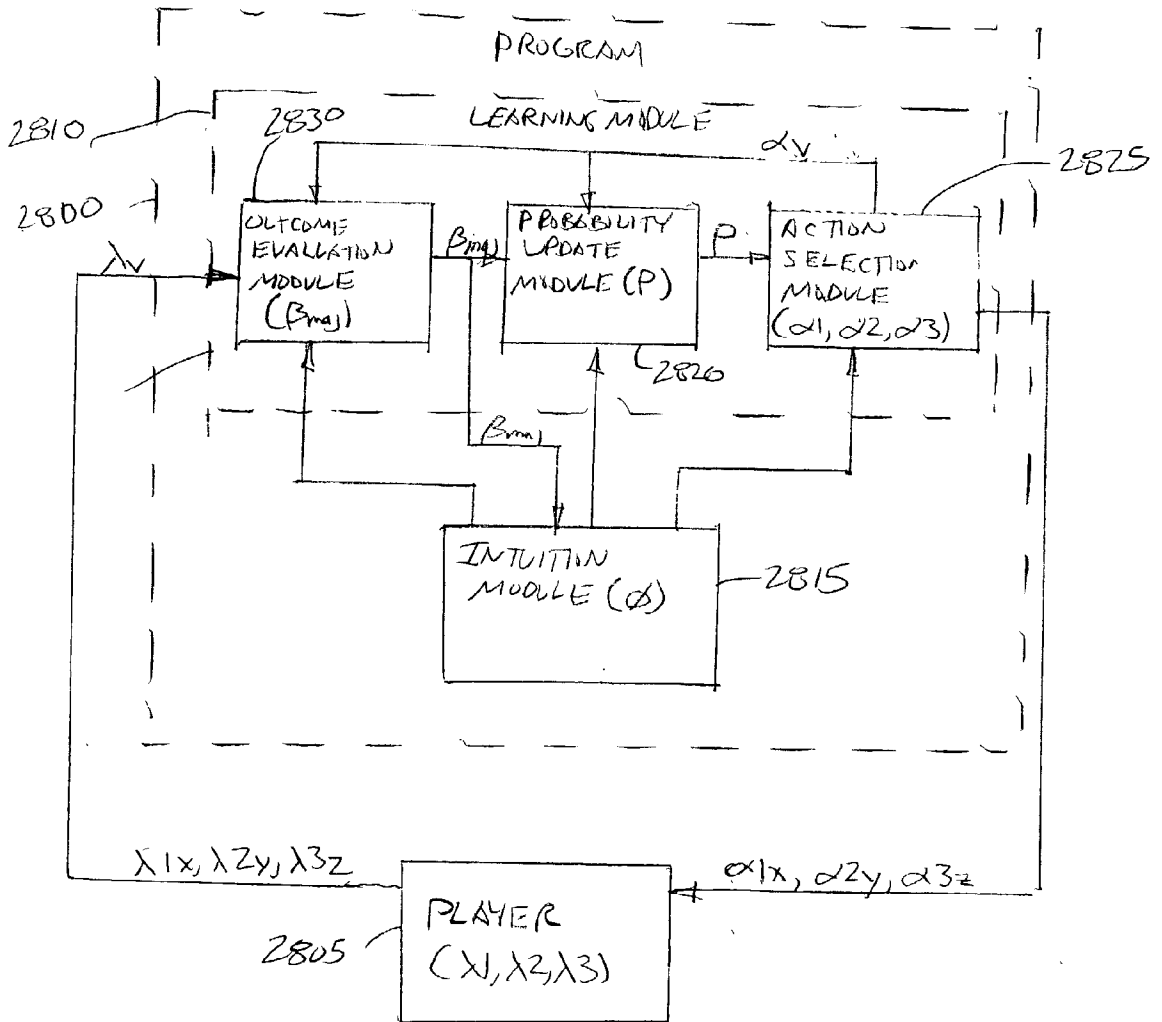 PROGRAM
LEARNING MODULE
2810
2830
αv
2825
2800
OUTCOME
EVALUATION
MODULE
(βmaj)
βmaj
PROBABILITY
UPDATE
MODULE (P)
P
ACTION
SELECTION
MODULE
(α1, α2, α3)
λv
2820
βmaj
INTUITION
MODULE (Ø)
2815
λ1x, λ2y, λ3z
α1x, α2y, α3z
PLAYER
(λ1, λ2, λ3)
2805